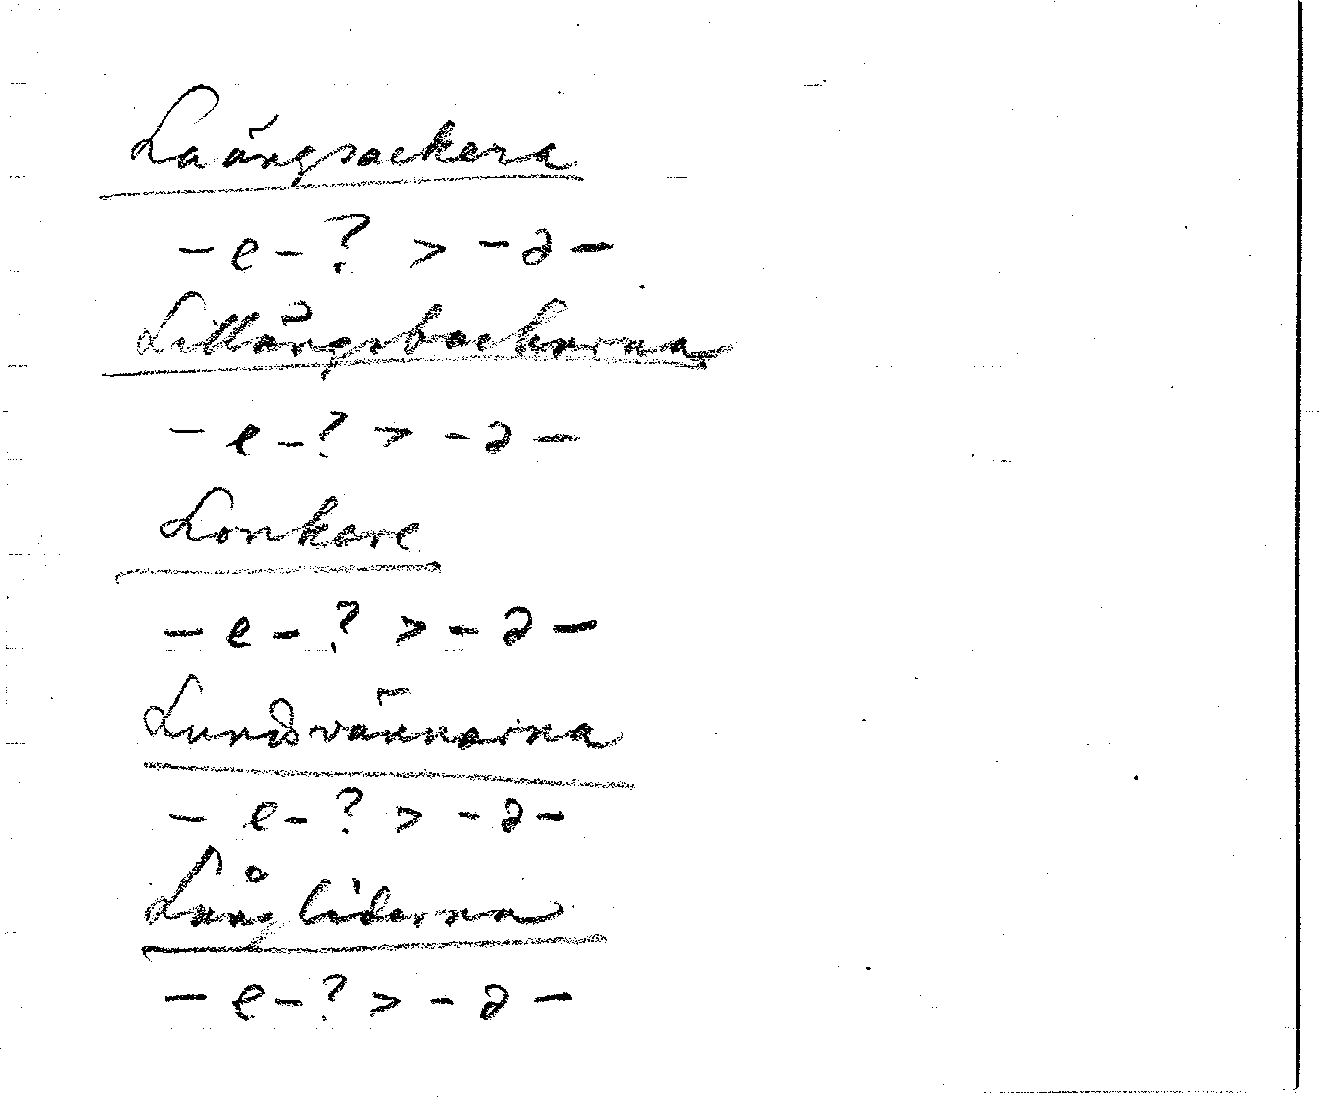 Laängsackera
- e - ? > - ə -
Littängsbackarna
- e - ? > - ə -
Lonkare
- e - ? > - ə -
Lundsvännarna
- e - ? > - ə -
Långliderna
- e - ? > - ə -